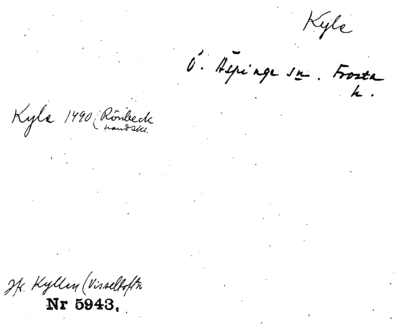 Kyle
Ö. Äspinge sn. Frosta
h.
Kyle 1490 (Rönbeck
handskr.
Jfr. Kyllen (Visseltofta
Nr 5943.